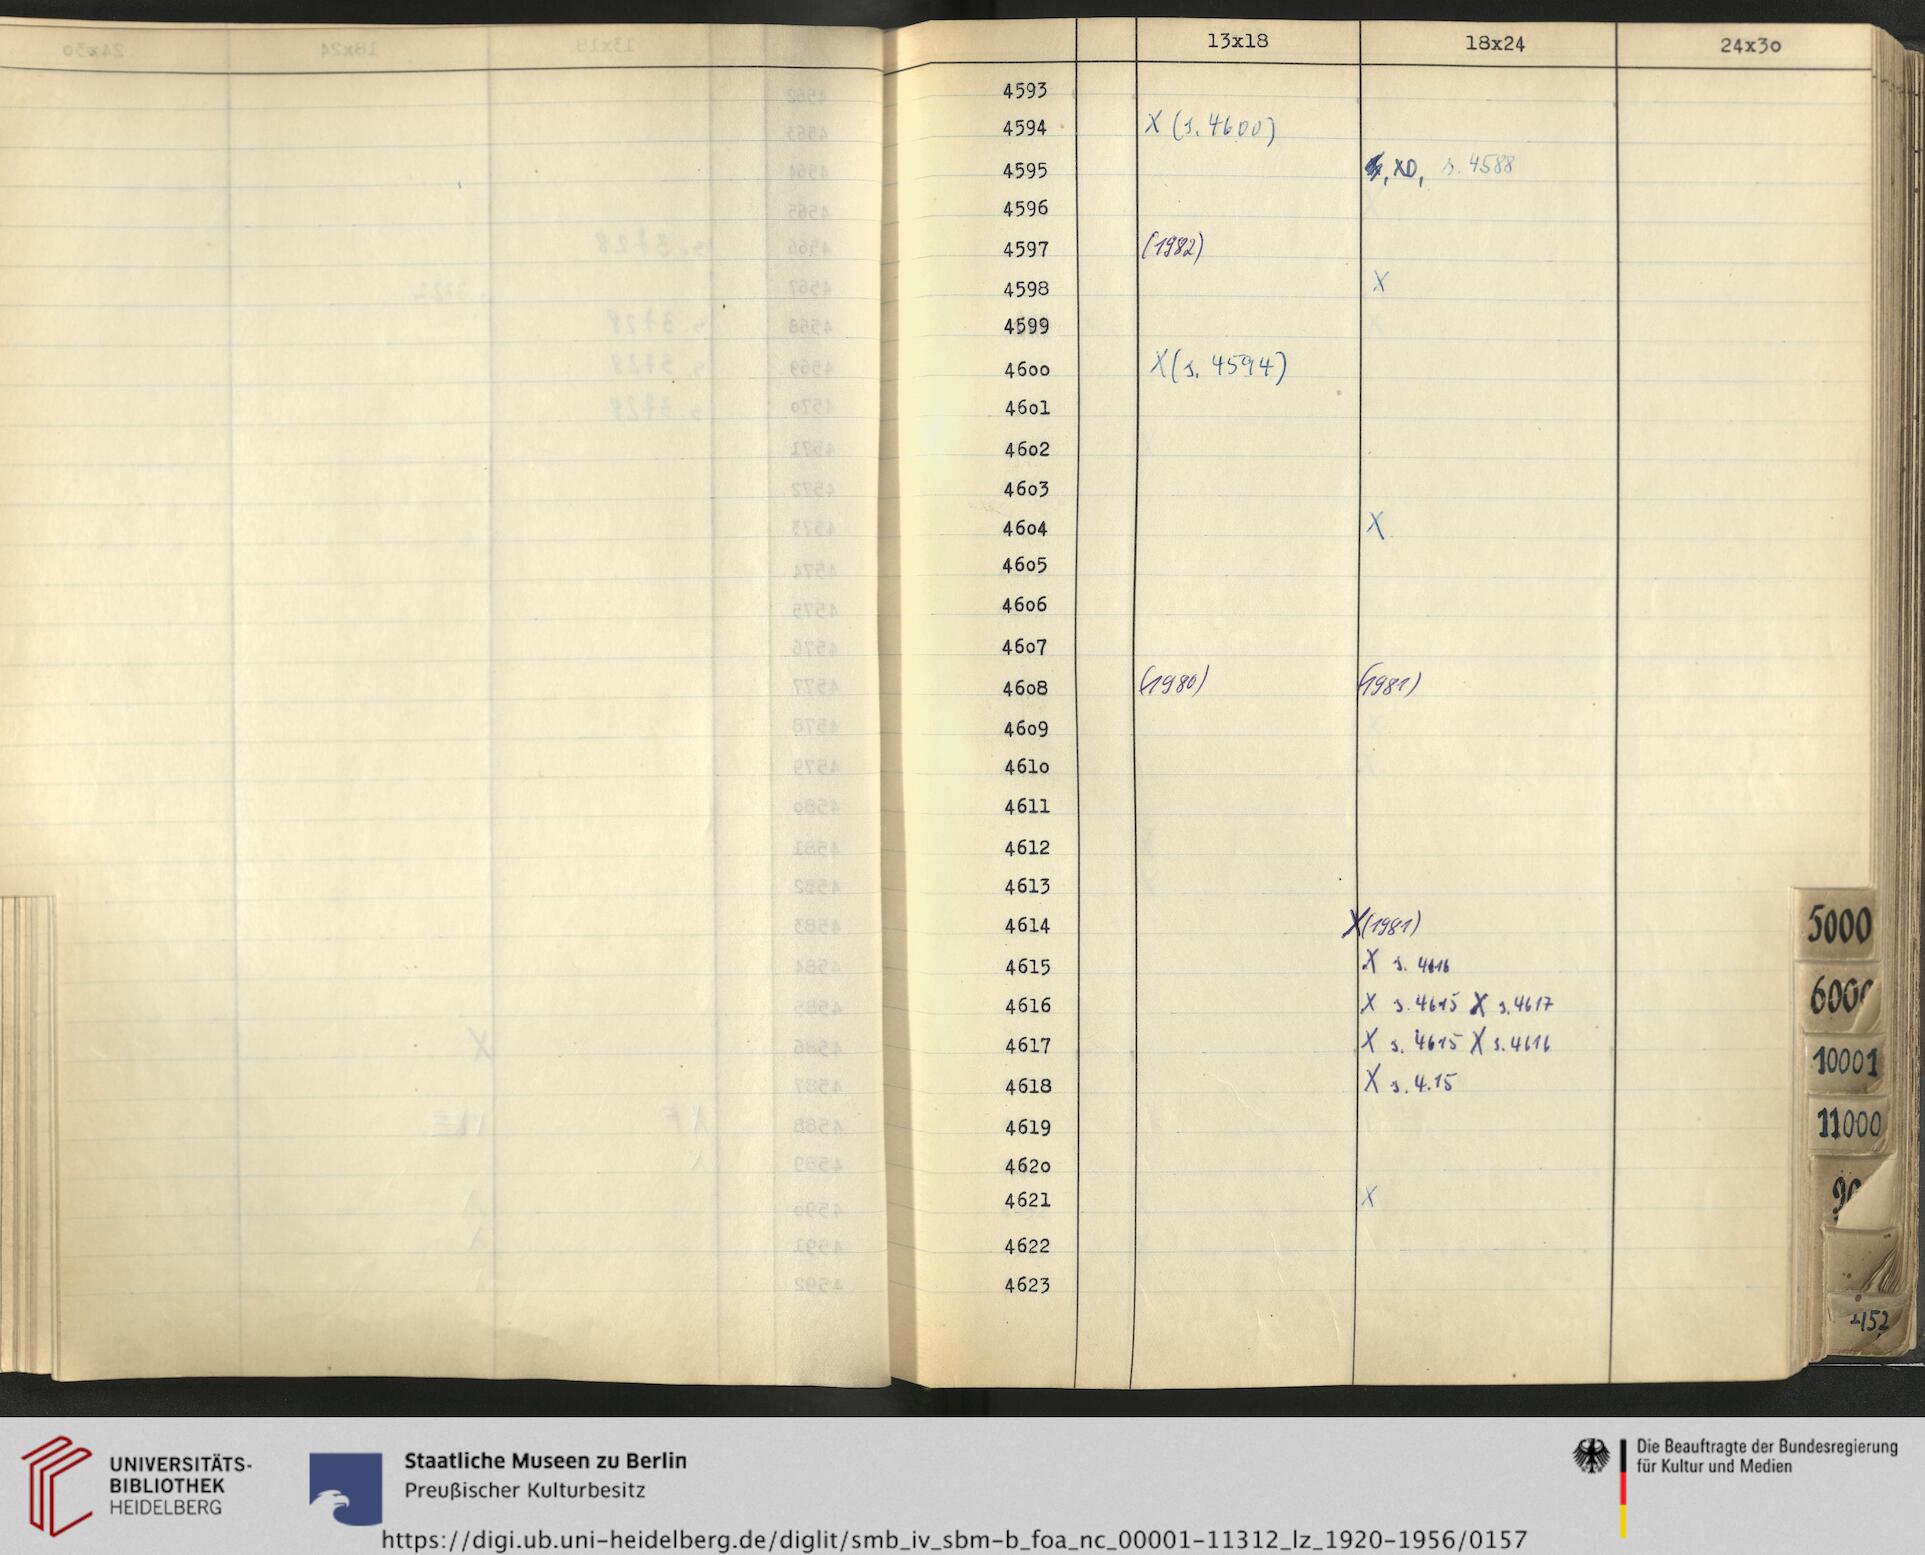 13x18 18x24 24x30
4593
4594 X (s. 4600)
4595 , XD, s. 4588
4596
4597 (1982)
4598 X
4599
4600 X (s. 4594)
4601
4602
4603
4604 X
4605
4606
4607
4608 (1980) (1981)
4609
4610
4611
4612
4613
4614 X (1981)
4615 X s. 4616
4616 X s. 4615 X s. 4617
4617 X s. 4615 X s. 4616
4618 X s. 4.15
4619
4620
4621 X
4622
4623
5000
6000
10001
11000
152
UNIVERSITÄTS-
BIBLIOTHEK
HEIDELBERG
Staatliche Museen zu Berlin
Preußischer Kulturbesitz
Die Beauftragte der Bundesregierung
für Kultur und Medien
https://digi.ub.uni-heidelberg.de/diglit/smb_iv_sbm-b_foa_nc_00001-11312_lz_1920-1956/0157